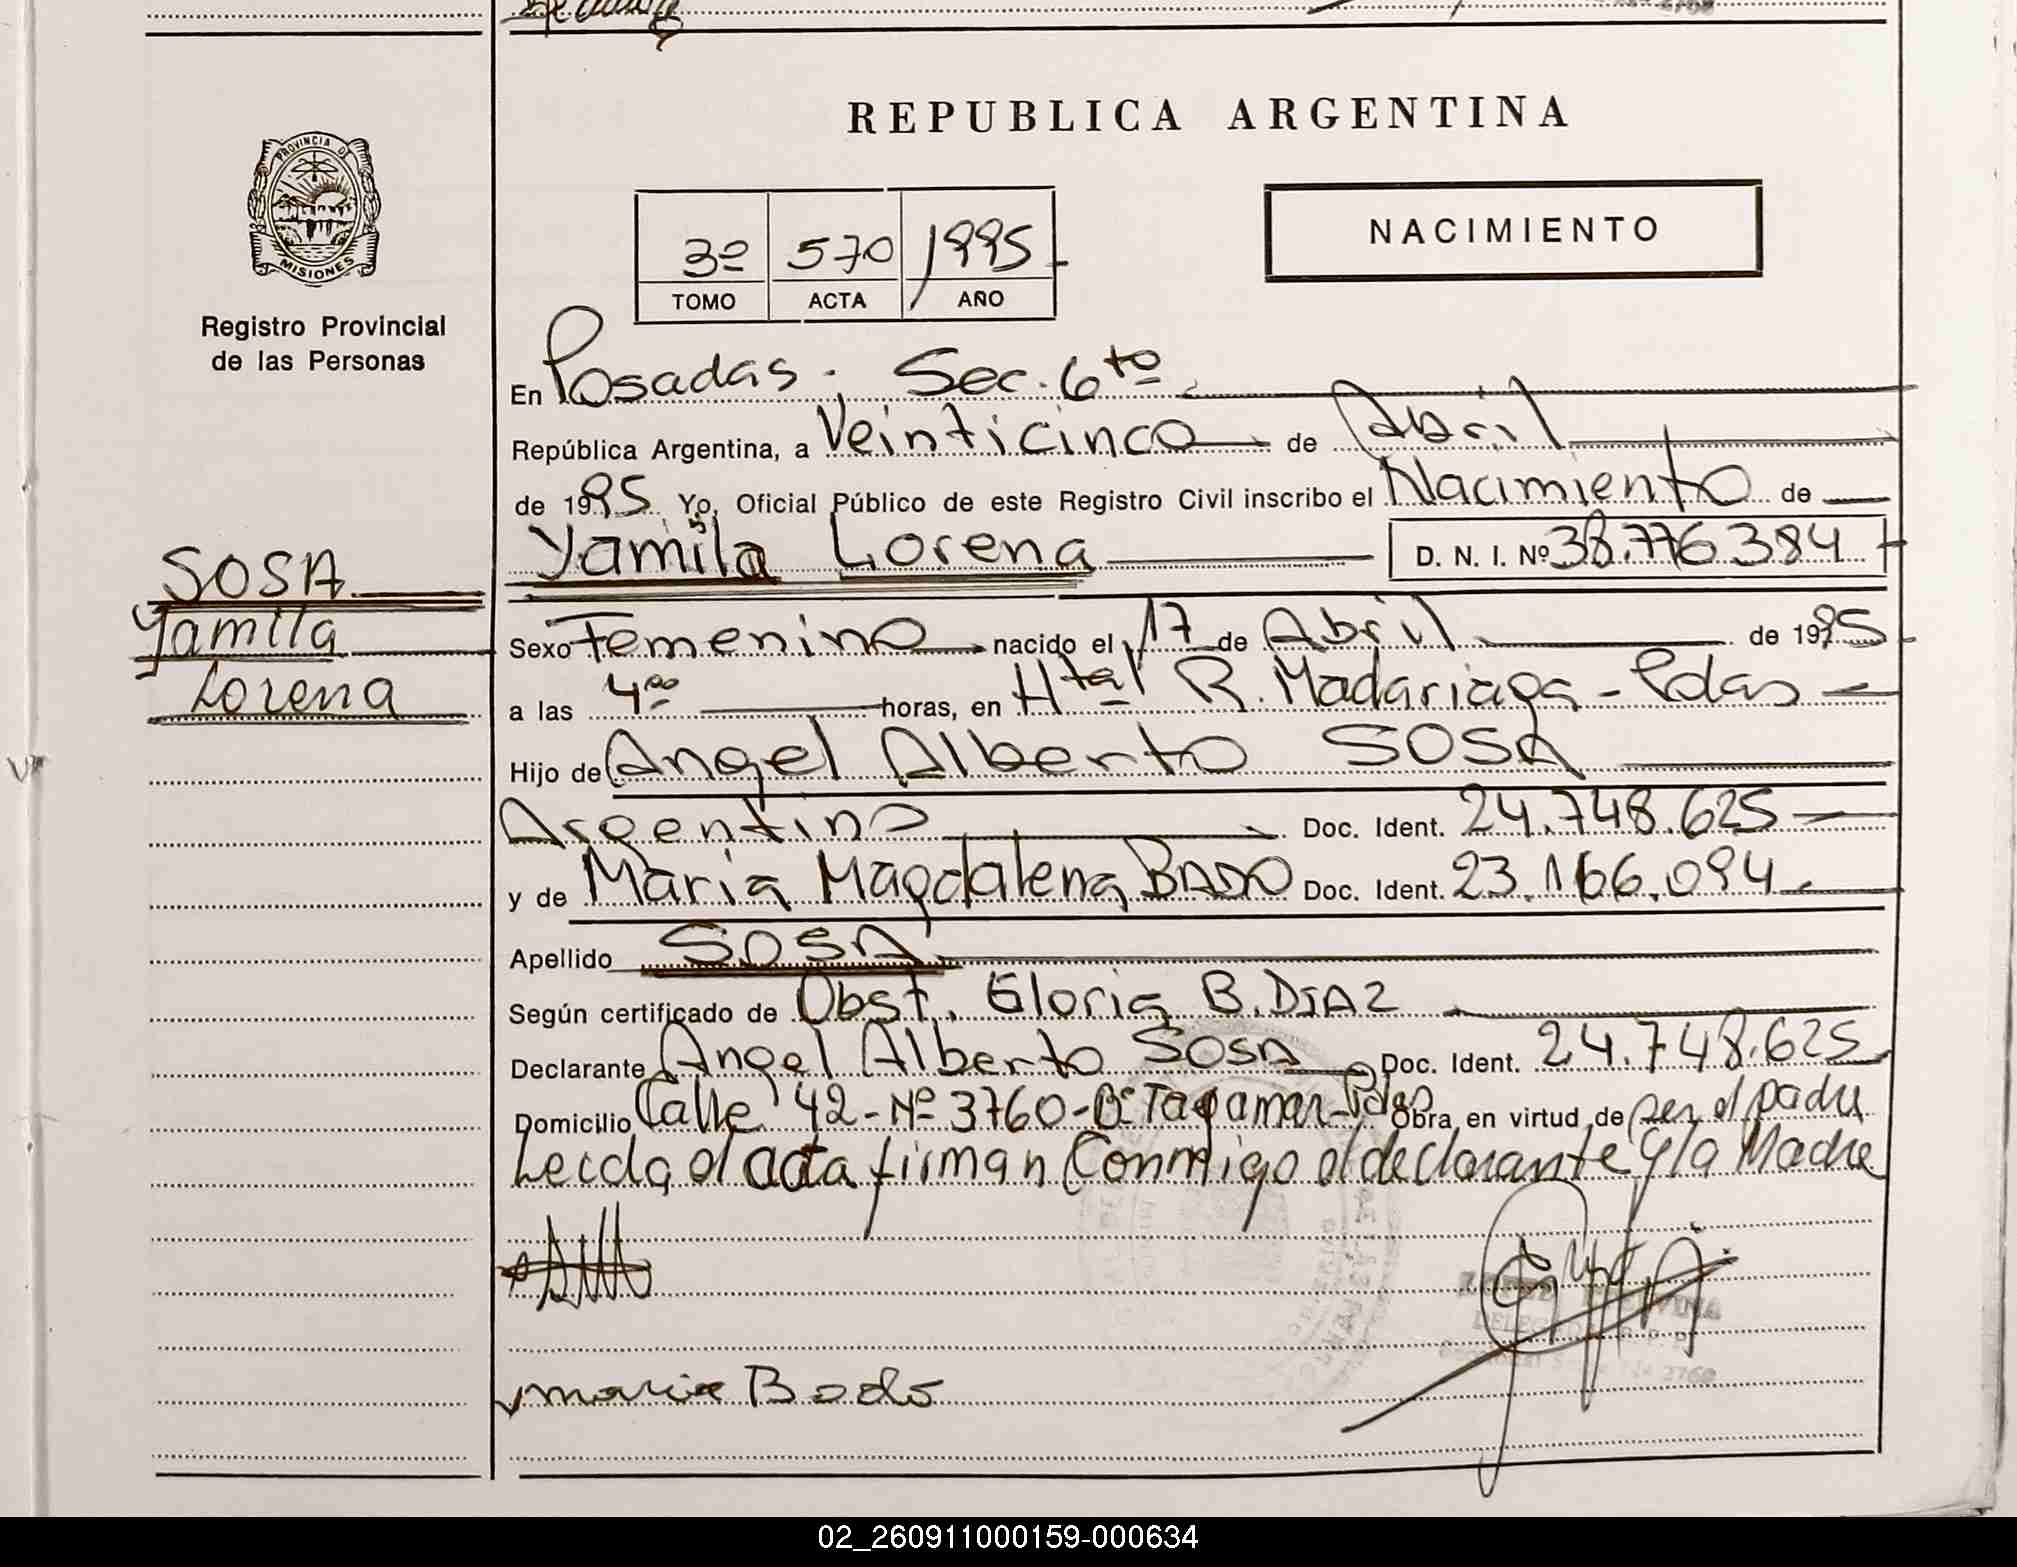 REPUBLICA ARGENTINA
PROVINCIA DE
MISIONES
Registro Provincial
de las Personas
3º 570 1995
TOMO ACTA AÑO
NACIMIENTO
En Posadas. Sec. 6to
República Argentina, a Veinticinco de Abril
de 1995 Yo, Oficial Público de este Registro Civil inscribo el Nacimiento de
Yamila Lorena D. N. I. Nº 38.776.384
SOSA
Yamila
Lorena
Sexo Femenino nacido el 17 de Abril de 1995
a las 4oo horas, en Htal R. Madariaga - Pdas
Hijo de Angel Alberto SOSA
Argentino Doc. Ident. 24.748.625
y de Maria Magdalena BADO Doc. Ident. 23.166.094
Apellido SOSA
Según certificado de Obst. Gloria B. DIAZ
Declarante Angel Alberto SOSA Doc. Ident. 24.748.625
Domicilio Calle 42 - Nº 3760 - Bº Pdas Obra en virtud de ser el padre
Leida el acta firman Conmigo el declarante y la Madre
maria Bado
02_260911000159-000634